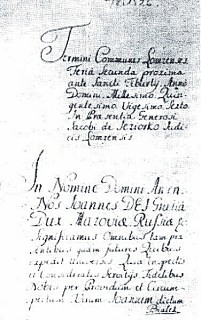 Termini Communes Lomzenses
Feria Secunda proxima
ante Sancti Egberty Anno
Domini Millesimo Quin
gentesimo Vigesimo Sexto
In Præsentia Generosi
Jacobi de Jeziorko Judi
cis Lomzensis
In Nomine Domini Amen
Nos Joannes DEI Gratia
Dux Mazoviæ Russiæ
Significamus Omnibus tam præ
sentibus quam futuris Quibus
expedit Universis Quia
et Consideratis Servitijs Fidelibus
Nobis per Providum et Circum
spectum Virum dictum